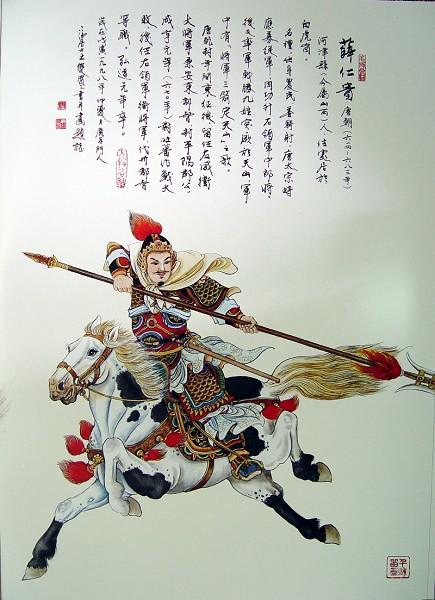 薛仁貴 唐朝(六一四—六八三年)
河津縣(今屬山西)人 住 居於
白虎崗。
名禮 出身農民 善騎射 唐太宗時
應募從軍 因功升右領軍中郎將。
後又率軍戰勝九姓突厥於天山,軍
中有「將軍三箭定天山」之歌。
唐乾封年間東征後 留任右威衛
大將軍兼安東都督 封平陽郡公。
咸亨元年(六七〇年)對吐蕃作戰大
敗後任右領軍衛將軍 代州都督
等職,弘道元年卒。
歲在戊寅一九九八年仲夏 門人
書并畫題